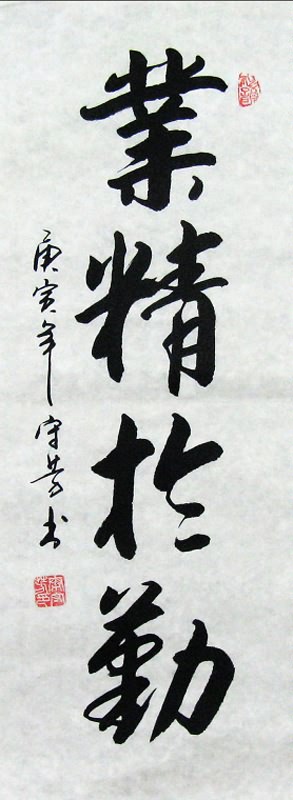 業精於勤
庚寅年守芳书